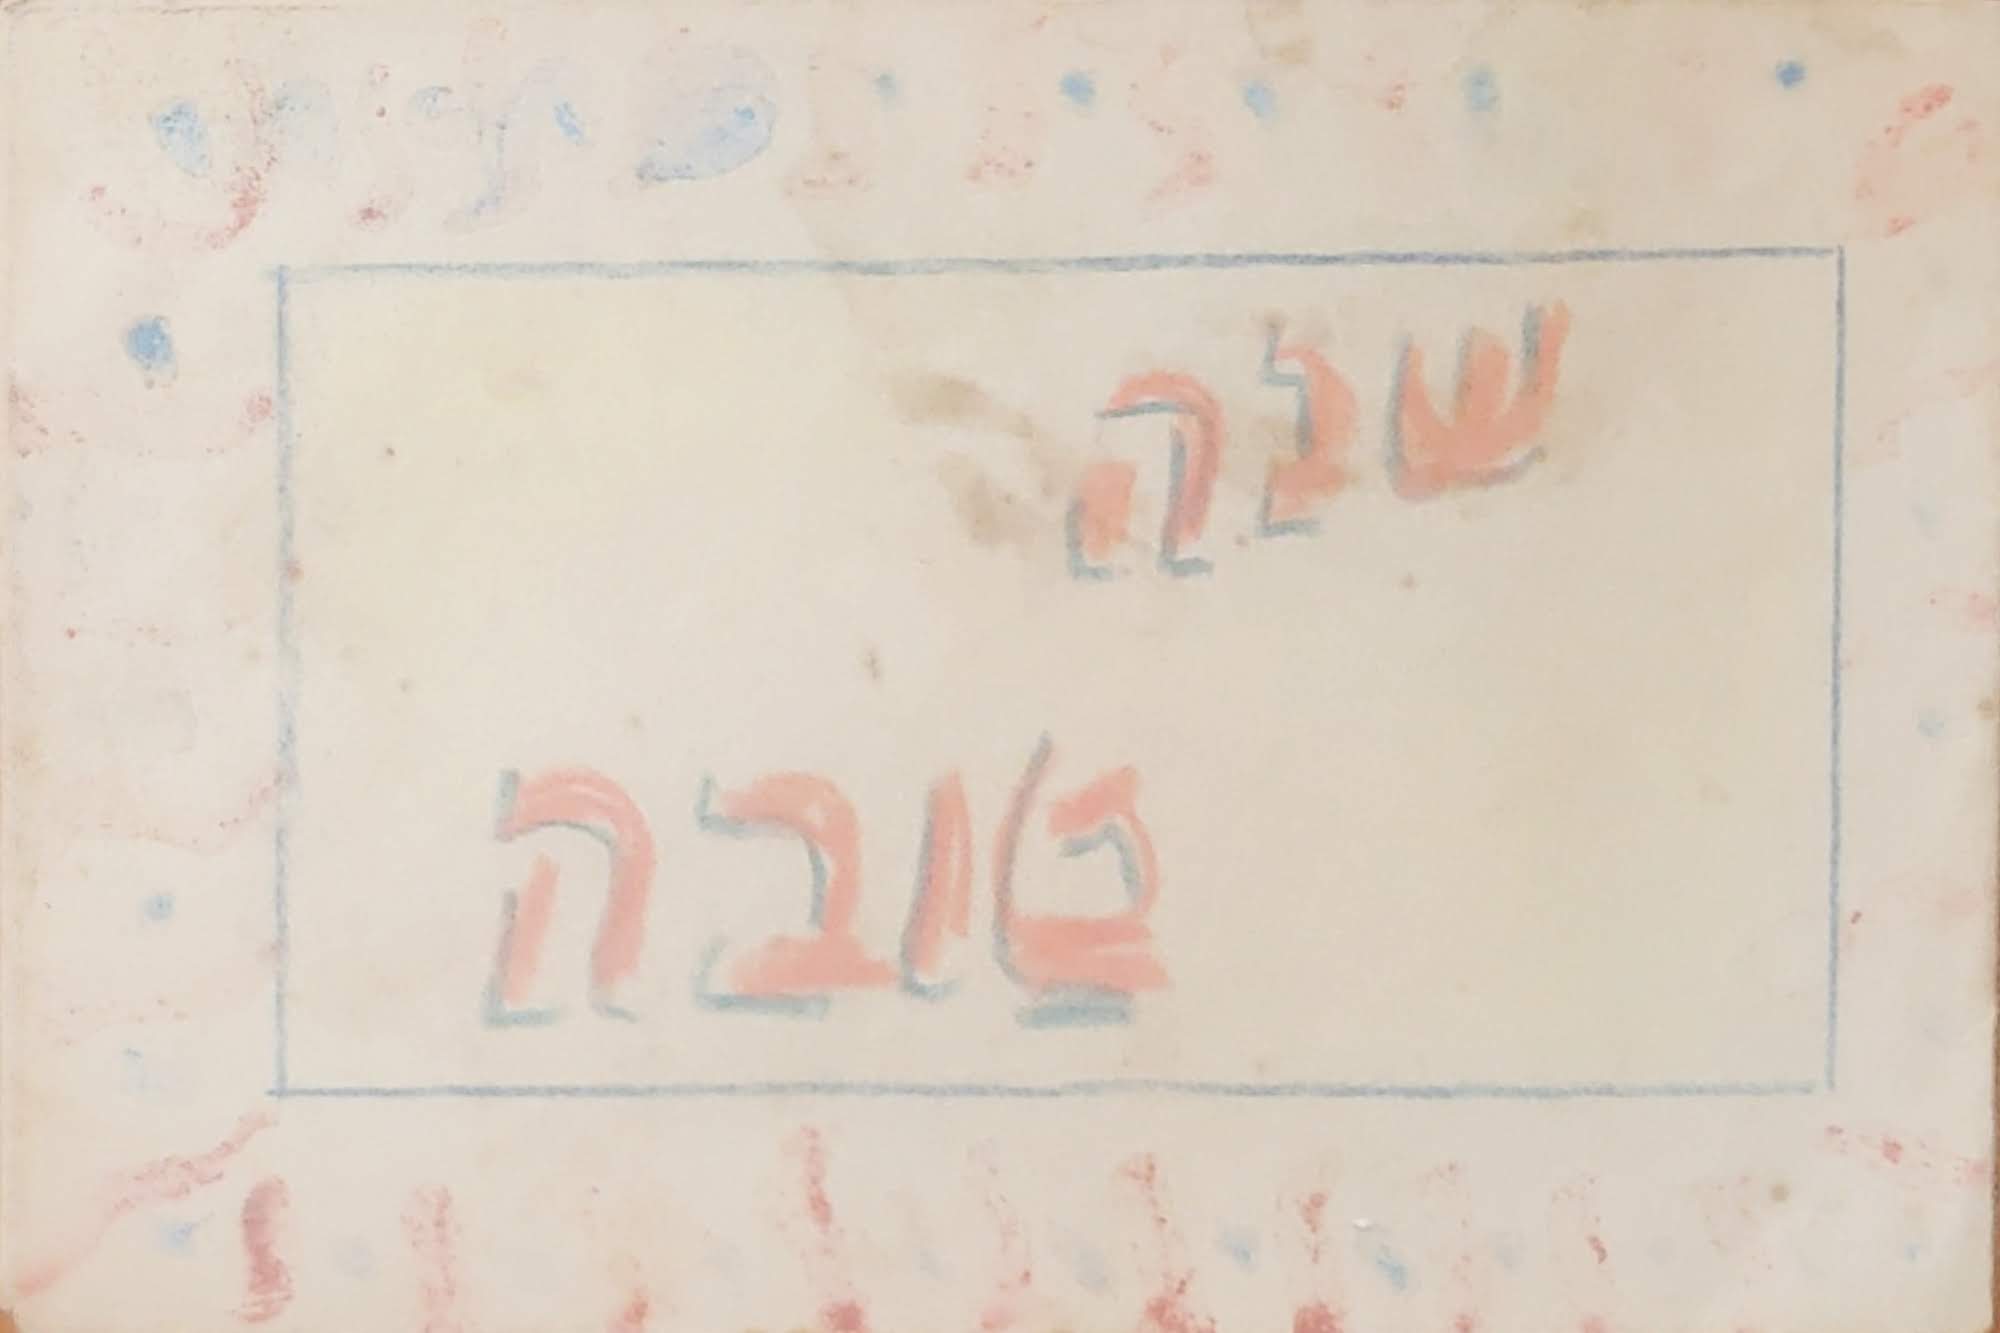 שנה
טובה